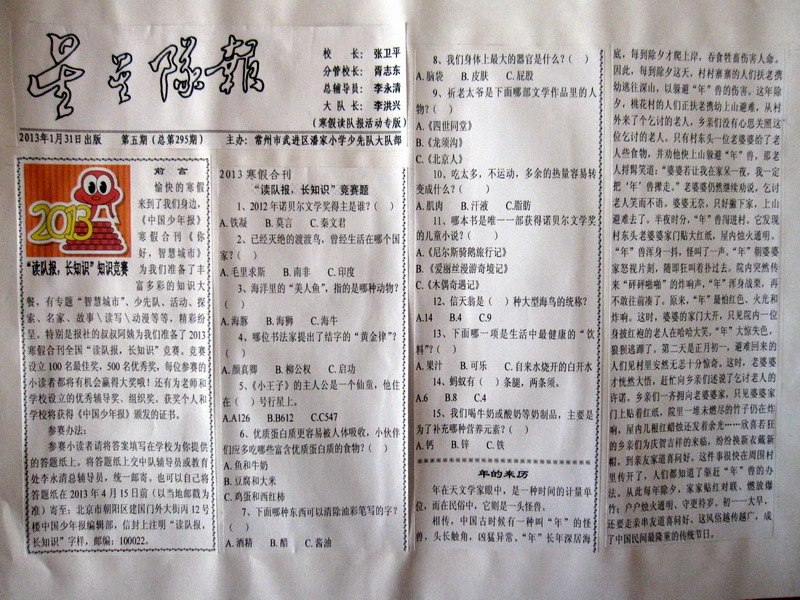 星星隊報
校 长: 张卫平
分管校长: 胥志东
总辅导员: 李永清
大 队 长: 李洪兴
(寒假读队报活动专版)
2013年1月31日出版 第五期(总第295期) 主办: 常州市武进区潘家小学少先队大队部
2013
“读队报,长知识”知识竞赛
前 言
愉快的寒假
来到了我们身边,
《中国少年报》
寒假合刊《你
好,智慧城市》
为我们准备了丰
富多彩的知识大
餐,有专题“智慧城市”、少先队、活动、探
索、名家、故事\读写\动漫等等,精彩纷
呈。特别是报社的叔叔阿姨为我们准备了 2013
寒假合刊全国“读队报,长知识”竞赛。竞赛
设立 100 名最佳奖,500 名优秀奖,每位参赛的
小读者都将有机会赢得大奖哦!还有为老师和
学校设立的优秀辅导奖、组织奖。获奖个人和
学校将获得《中国少年报》颁发的证书。
参赛办法:
参赛小读者请将答案填写在学校为你提供
的答题纸上。将答题纸上交中队辅导员或教育
处李永清总辅导员,统一邮寄。也可以自己将
答题纸在 2013 年 4 月 15 日前(以当地邮戳为
准)寄至:北京市朝阳区建国门外大街丙 12 号
楼中国少年报编辑部,信封上注明“读队报,
长知识”字样,邮编:100022。
2013 寒假合刊
“读队报,长知识”竞赛题
1、2012 年诺贝尔文学奖得主是谁?( )
A.铁凝 B.莫言 C.秦文君
2、已经灭绝的渡渡鸟,曾经生活在哪个国
家?( )
A.毛里求斯 B.南非 C.印度
3、海洋里的“美人鱼”,指的是哪种动物?
( )
A.海豚 B.海狮 C.海牛
4、哪位书法家提出了结字的“黄金律”?
( )
A.颜真卿 B.柳公权 C.启功
5、《小王子》的主人公是一个仙童,他住
在( )号行星上。
A.A126 B.B612 C.C547
6、优质蛋白质更容易被人体吸收,小伙伴
们应多吃哪些富含优质蛋白质的食物?( )
A.鱼和牛奶
B.豆腐和大米
C.鸡蛋和西红柿
7、下面哪种东西可以清除油彩笔写的字?
( )
A.酒精 B.醋 C.酱油
8、我们身体上最大的器官是什么?( )
A.脑袋 B.皮肤 C.屁股
9、祈老太爷是下面哪部文学作品里的人
物?( )
A.《四世同堂》
B.《龙须沟》
C.《北京人》
10、吃太多,不运动,多余的热量容易转
变成什么?( )
A.肌肉 B.汗液 C.脂肪
11、哪本书是唯一一部获得诺贝尔文学奖
的儿童小说?( )
A.《尼尔斯骑鹅旅行记》
B.《爱丽丝漫游奇境记》
C.《木偶奇遇记》
12、信天翁是( )种大型海鸟的统称?
A.14 B.4 C.9
13、下面哪一项是生活中最健康的“饮
料”?( )
A.果汁 B.可乐 C.自来水烧开的白开水
14、蚂蚁有( )条腿,两条须。
A.6 B.8 C.4
15、我们喝牛奶或酸奶等奶制品,主要是
为了补充哪种营养元素?( )
A.钙 B.锌 C.铁
年的来历
年在天文学家眼中,是一种时间的计量单
位,而在民俗中,它则是一头怪兽。
相传,中国古时候有一种叫“年”的怪
兽,头长触角,凶猛异常。“年”长年深居海
底,每到除夕才爬上岸,吞食牲畜伤害人命。
因此,每到除夕这天,村村寨寨的人们扶老携
幼逃往深山,以躲避“年”兽的伤害。这年除
夕,桃花村的人们正扶老携幼上山避难,从村
外来了个乞讨的老人,乡亲们没有心思关照这
位乞讨的老人。只有村东头一位老婆婆给了老
人些食物,并劝他快上山躲避“年”兽,那老
人捋髯笑道:“婆婆若让我在家呆一夜,我一定
把‘年’兽撵走。”老婆婆仍然继续劝说,乞讨
老人笑而不语。婆婆无奈,只好撇下家,上山
避难去了。半夜时分,“年”兽闯进村。它发现
村东头老婆婆家门贴大红纸,屋内烛火通明。
“年”兽浑身一抖,怪叫了一声。“年”朝婆婆
家怒视片刻,随即狂叫着扑过去。院内突然传
来“砰砰啪啪”的炸响声,“年”浑身战栗,再
不敢往前凑了。原来,“年”最怕红色、火光和
炸响。这时,婆婆的家门大开,只见院内一位
身披红袍的老人在哈哈大笑。“年”大惊失色,
狼狈逃蹿了。第二天是正月初一,避难回来的
人们见村里安然无恙十分惊奇。这时,老婆婆
才恍然大悟,赶忙向乡亲们述说了乞讨老人的
许诺。乡亲们一齐拥向老婆婆家,只见婆婆家
门上贴着红纸,院里一堆未燃尽的竹子仍在炸
响,屋内几根红蜡烛还发着余光……欣喜若狂
的乡亲们为庆贺吉祥的来临,纷纷换新衣戴新
帽,到亲友家道喜问好。这件事很快在周围村
里传开了,人们都知道了驱赶“年”兽的办
法。从此每年除夕,家家贴红对联、燃放爆
竹;户户烛火通明、守更待岁。初一一大早,
还要走亲串友道喜问好。这风俗越传越广,成
了中国民间最隆重的传统节日。